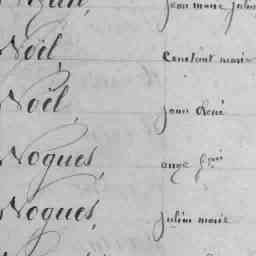 jean marie Julien
Noël, Constant marie
Noël, jean René
Nogues, ange f.çois
Nogues, Julien marie